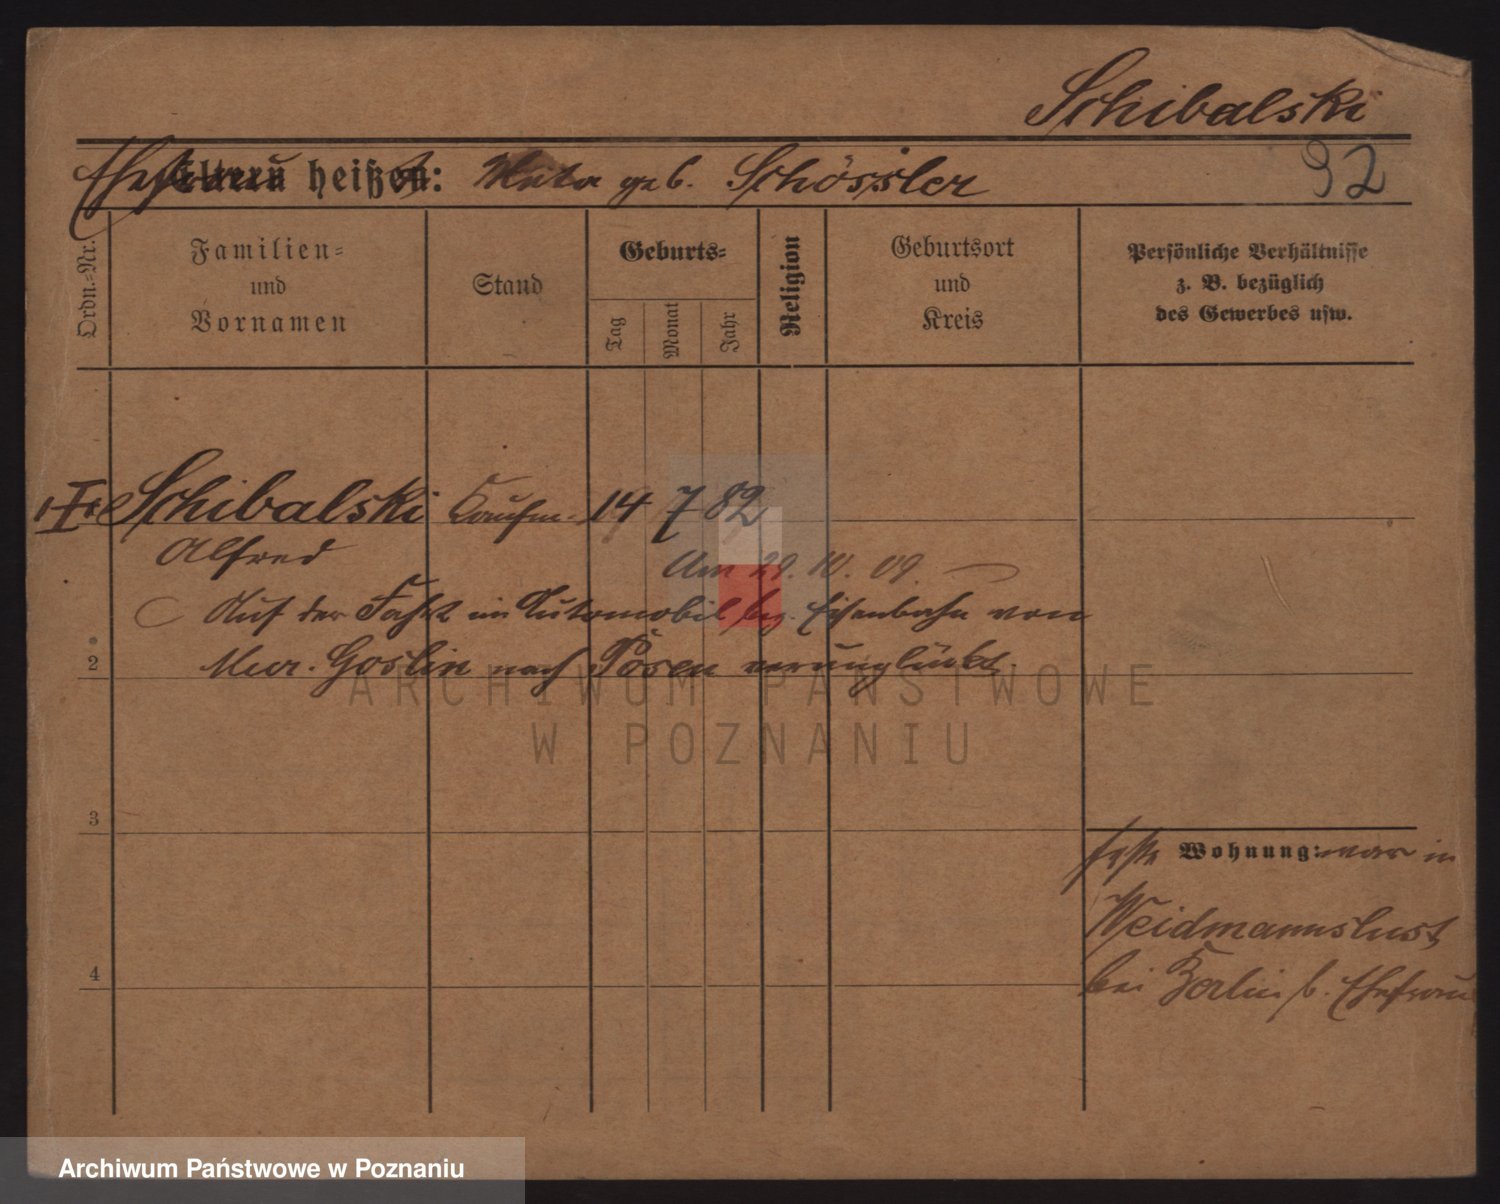 Schibalski
Ehefrau heißt: Meta geb. Schössler
92
Ordn.-Nr.
Familien-
und
Vornamen
Stand
Geburts-
Tag
Monat
Jahr
Religion
Geburtsort
und
Kreis
Persönliche Verhältnisse
z. B. bezüglich
des Gewerbes usw.
Schibalski Kaufm. 14 7 82
Alfred
Am 29. 10. 09.
Auf der Fahrt im Automobil bez. Eisenbahn von
Mur. Goslin nach Posen verunglückt.
2
3
4
feste Wohnung: war in
Weidmannslust
bei Berlin b. Ehefrau
ARCHIWUM PAŃSTWOWE
W POZNANIU
Archiwum Państwowe w Poznaniu